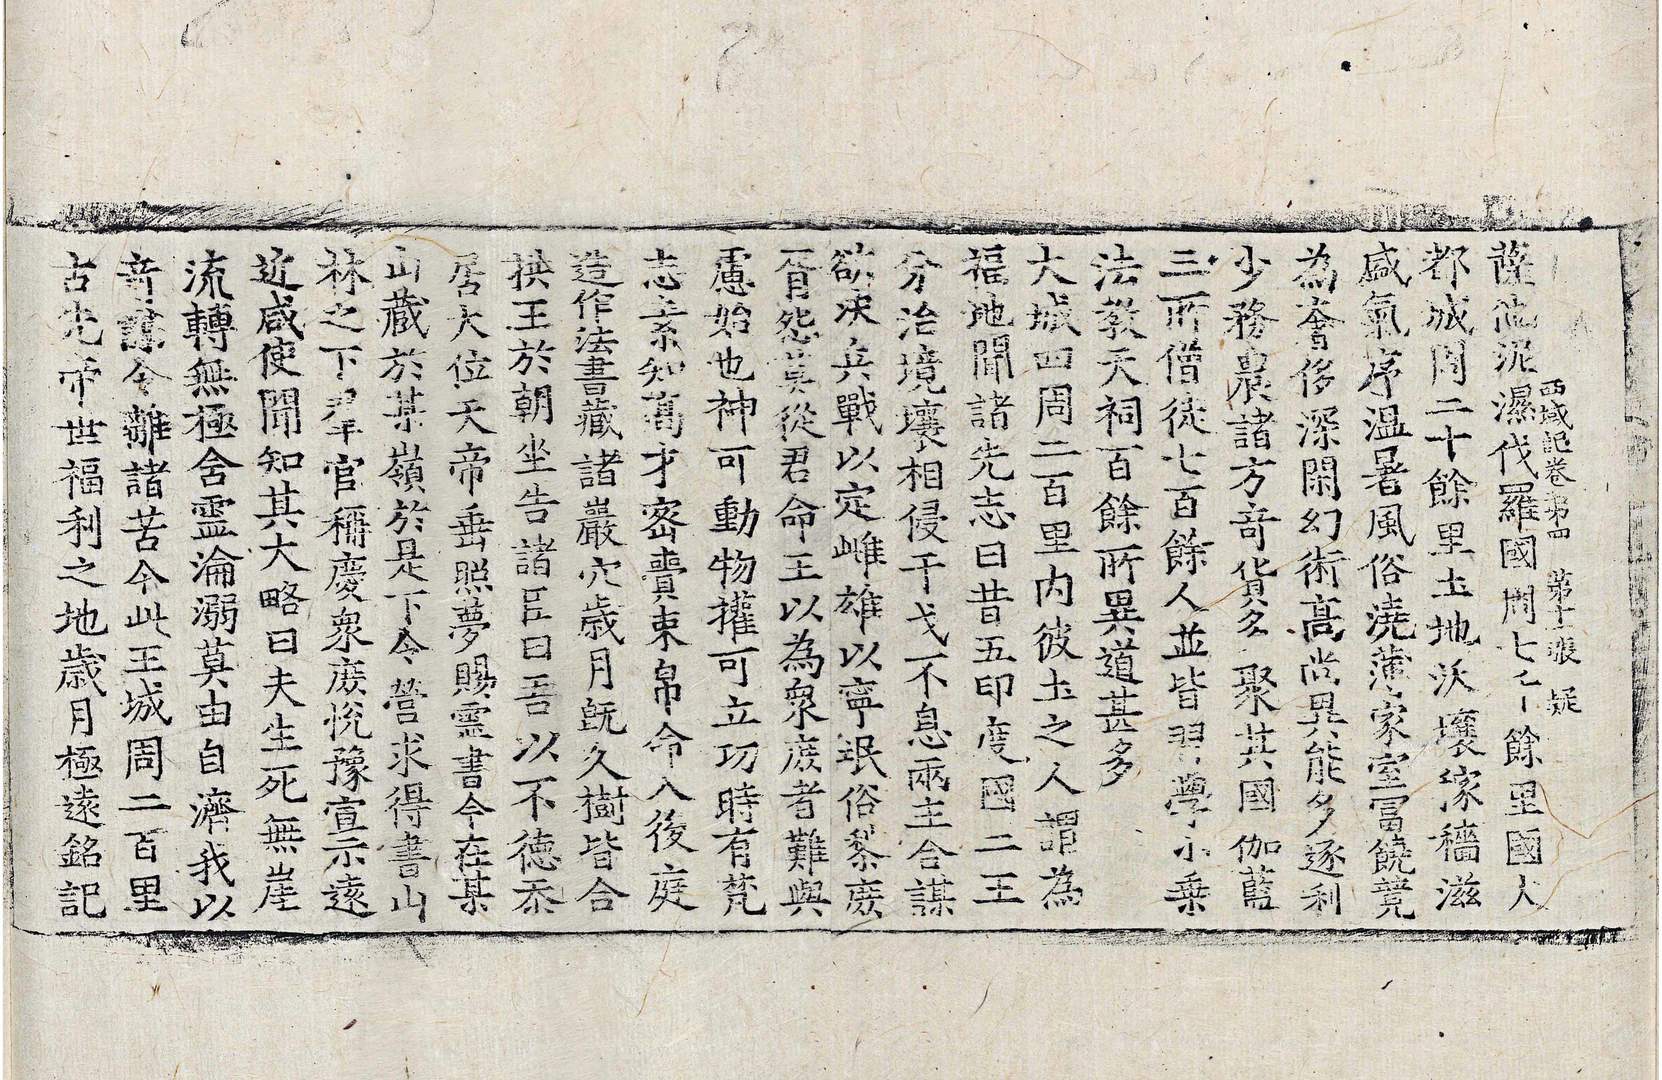 西域記卷第四　第十張　疑
薩他泥濕伐羅國周七千餘里國大
都城周二十餘里土地沃壤稼穡滋
盛氣序溫暑風俗澆薄家室富饒竟
為奢侈深閑幻術高尚異能多逐利
少務農諸方奇貨多聚其國伽藍
三所僧徒七百餘人並皆習學小乘
法教天祠百餘所異道甚多
大城四周二百里內彼土之人謂為
福地聞諸先志曰昔五印度國二王
分治境壤相侵干戈不息兩主合謀
欲決兵戰以定雌雄以寧氓俗黎庶
胥怨莫從君命王以為眾庶者難與
慮始也神可動物權可立功時有梵
志素知高才密賷束帛命入後庭
造作法書藏諸巖穴歲月既久樹皆合
拱王於朝坐告諸臣曰吾以不德忝
居大位天帝垂照夢賜靈書今在某
山藏於某嶺於是下令營求得書山
林之下群官稱慶眾庶悅豫宣示遠
近咸使聞知其大略曰夫生死無崖
流轉無極含靈淪溺莫由自濟我以
奇謀令離諸苦今此王城周二百里
古先帝世福利之地歲月極遠銘記